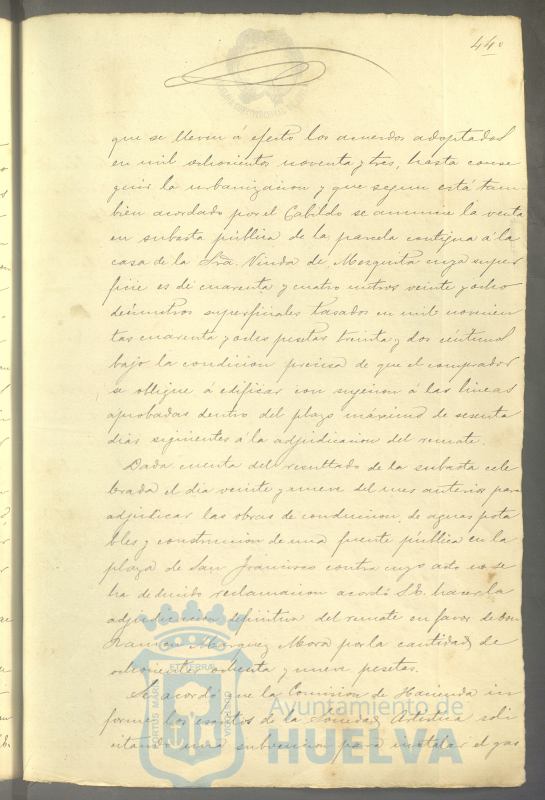 440
que se lleven á efecto los acuerdos adoptados
en mil ochocientos noventa y tres, hasta conse
guir la urbanizacion y que segun está tam-
bien acordado por el Cabildo se anuncie la venta
en subasta pública de la parcela contigua á la
casa de la Sra. Viuda de Mezquita cuya super
ficie es de cuarenta y cuatro metros veinte y ocho
decímetros superficiales tasados en mil novecien
tas cuarenta y ocho pesetas treinta y dos céntimos
bajo la condicion precisa de que el comprador
se obligue á edificar con sujecion á las lineas
aprobadas dentro del plazo máximo de sesenta
dias siguientes á la adjudicacion del remate.
Dada cuenta del resultado de la subasta cele
brada el dia veinte y nueve del mes anterior para
adjudicar las obras de conduccion de aguas pota
bles y construccion de una fuente pública en la
plaza de San Francisco contra cuyo acto no se
ha deducido reclamacion acordó S.E. hacer la
adjudicacion definitiva del remate en favor de Don
Ramon Marquez Mora por la cantidad de
ochocientas ochenta y nueve pesetas.
Se acordó que la Comision de Hacienda in
forme los escritos de la Sociedad Artística soli
citando una subvencion para instalar el gas
PORTUS MARIS ET TERRAE CUSTODIA
Ayuntamiento de
HUELVA